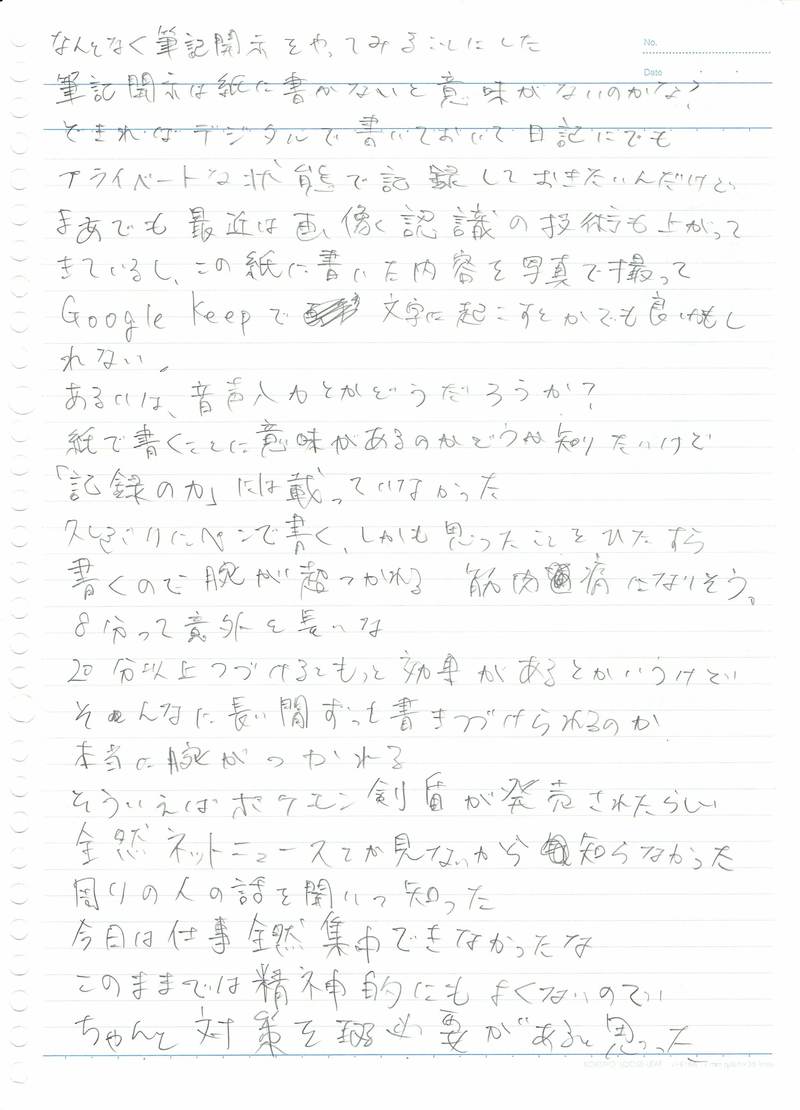 なんとなく筆記開示をやってみることにした
No.
筆記開示は紙に書かないと意味がないのかな?
Date
できればデジタルで書いておいて日記にでも
プライベートな状態で記録しておきたいんだけど
まあでも最近は画像認識の技術も上がって
きているし、この紙に書いた内容を写真で撮って
Google Keepで 文字に起こすとかでも良いかもし
れない。
あるいは、音声入力とかどうだろうか?
紙で書くことに意味があるのかどうか知りたいけど
「記録の力」には載っていなかった
久しぶりにペンで書く、しかも思ったことをひたすら
書くので腕が超つかれる 筋肉痛になりそう。
8分って意外と長いな
20分以上つづけるともっと効果があるとかいうけど
そんなに長い間ずっと書きつづけられるのか
本当に腕がつかれる
そういえばポケモン剣盾が発売されたらしい
全然ネットニュースとか見ないから知らなかった
周りの人の話を聞いて知った
今日は仕事全然集中できなかったな
このままでは精神的にもよくないので
ちゃんと対策を取る必要があると思った
KOKUYO LOOSE-LEAF